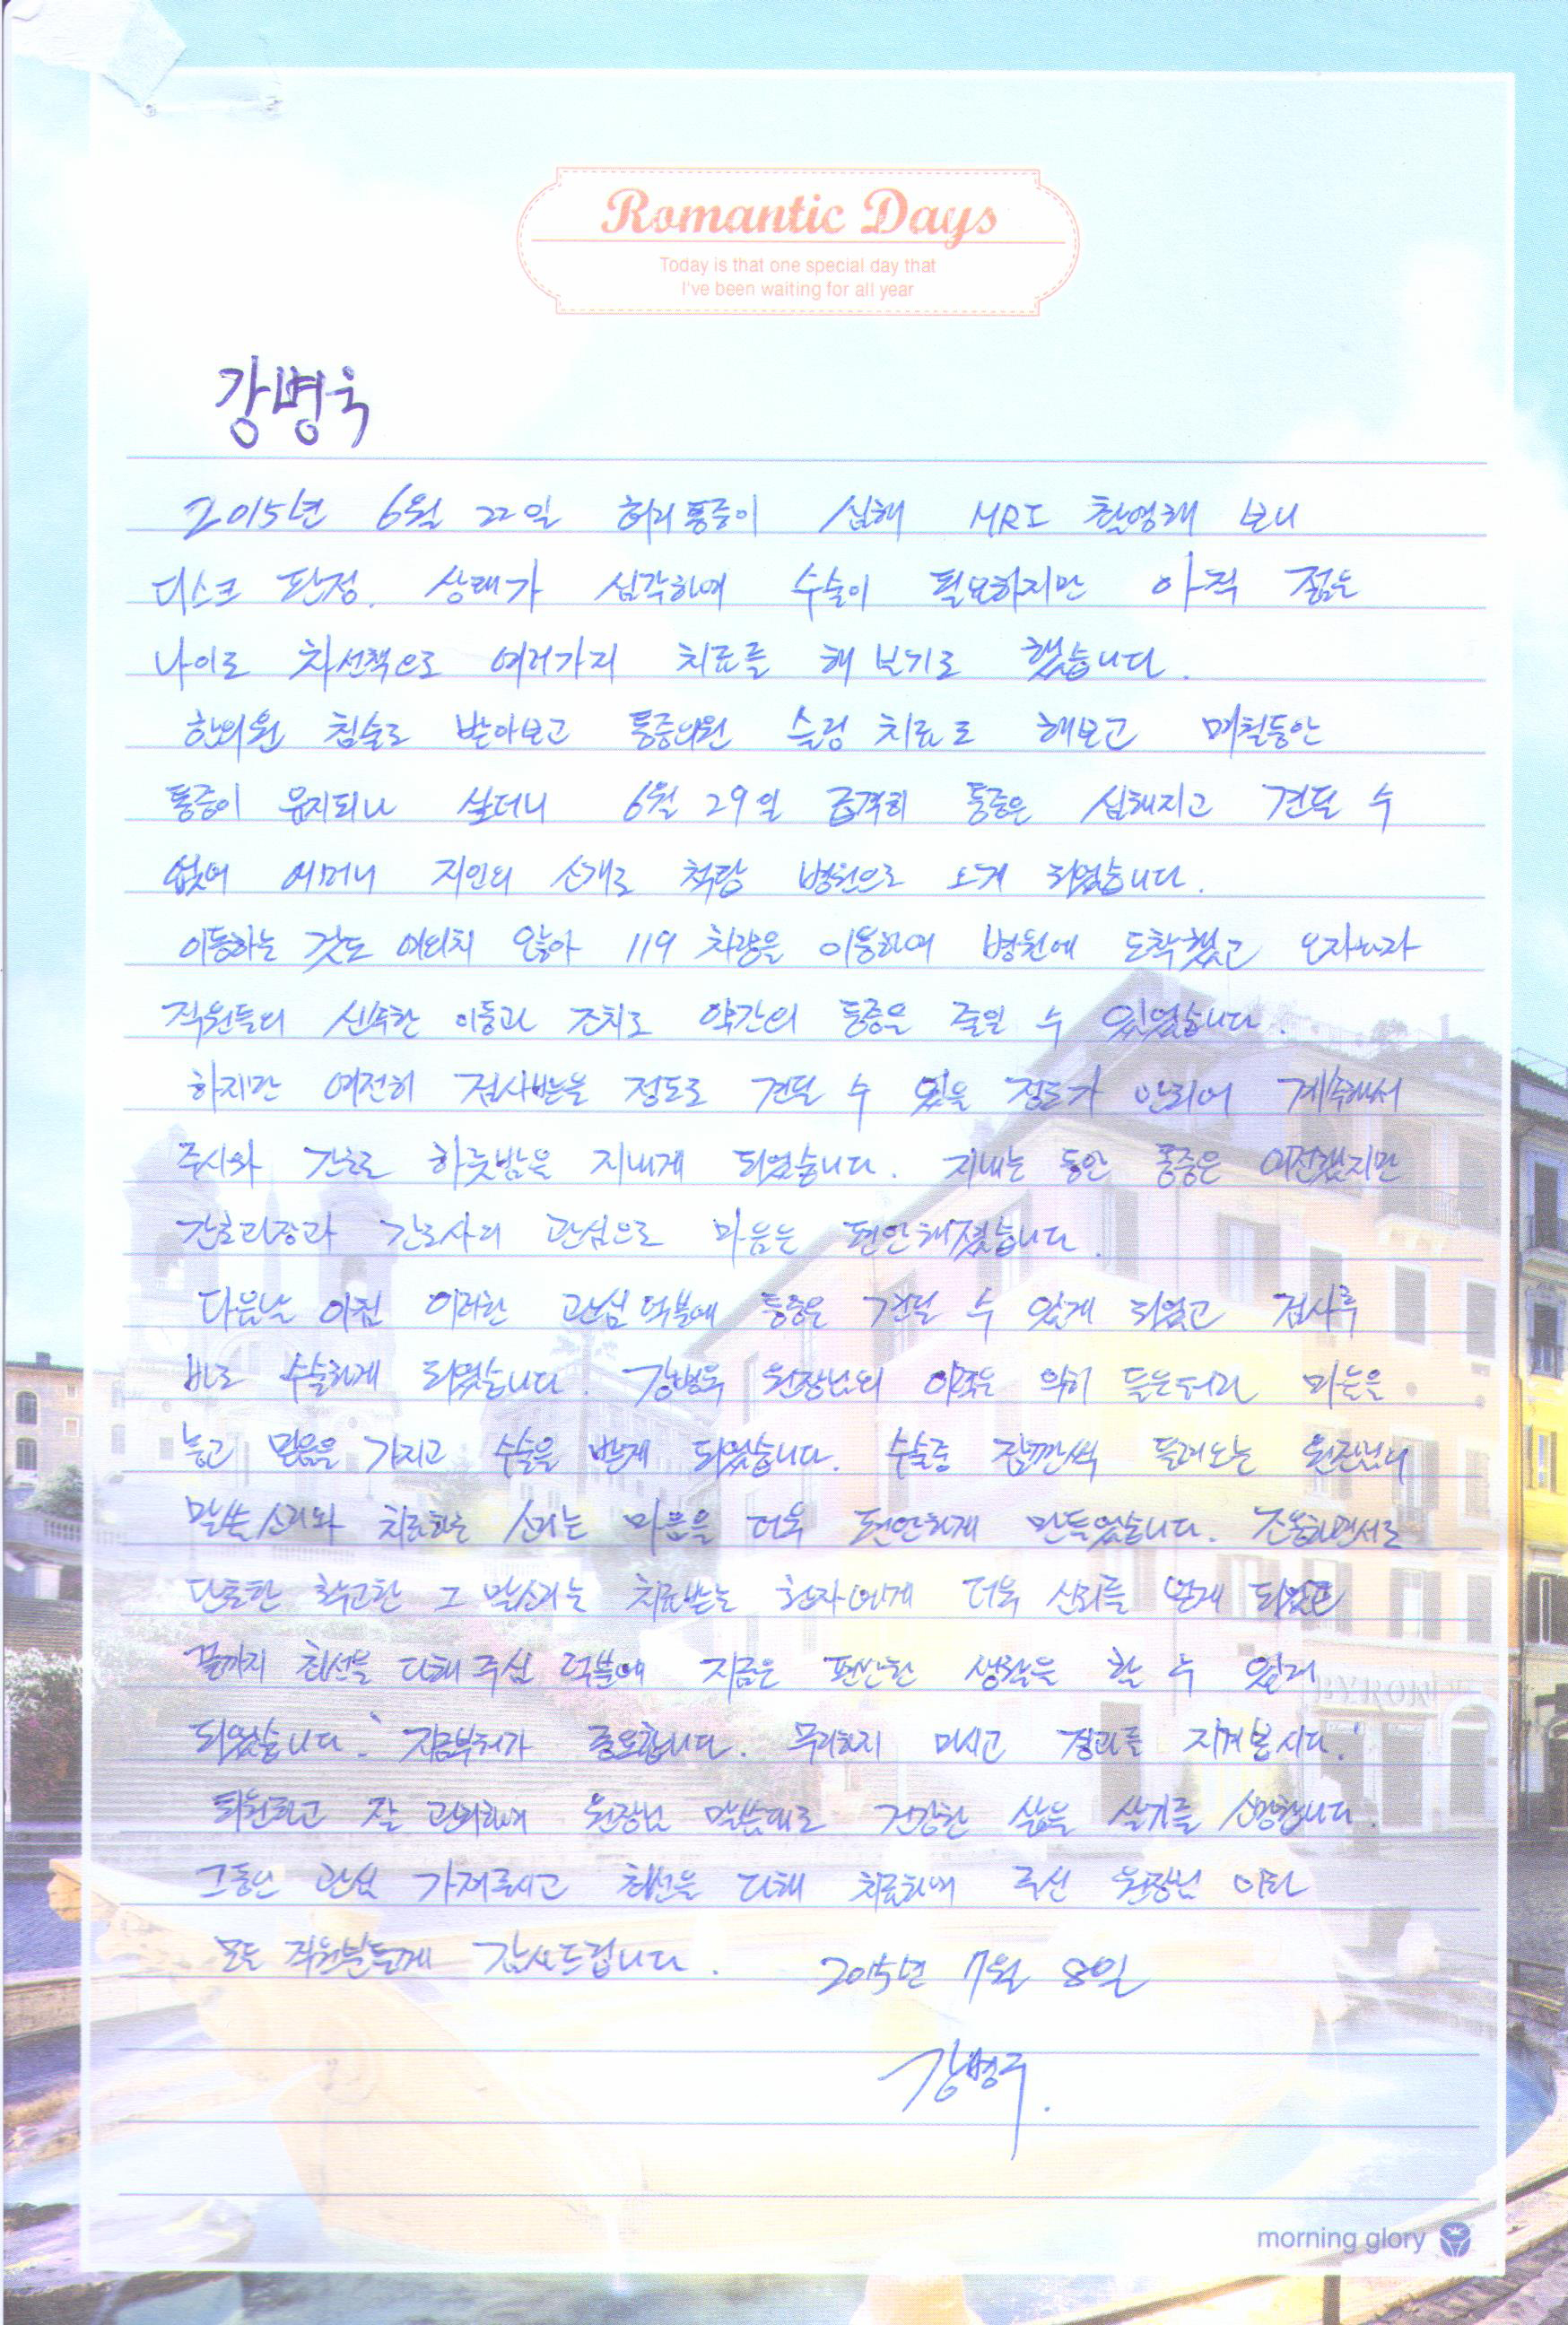 Romantic Days
Today is that one special day that
I've been waiting for all year
강병욱
2015년 6월 22일 허리통증이 심해 MRI 촬영해 보니
디스크 판정. 상태가 심각하여 수술이 필요하지만 아직 젊은
나이로 차선책으로 여러가지 치료를 해 보기로 했습니다.
한의원 침술도 받아보고 통증의원 슬링 치료도 해보고 며칠동안
통증이 유지되나 싶더니 6월 29일 급격히 통증은 심해지고 견딜 수
없어 어머니 지인의 소개로 척탑 병원으로 오게 되었습니다.
이동하는 것도 여의치 않아 119 차량을 이용하여 병원에 도착했고 오자마자
직원들의 신속한 이동과 조치로 약간의 통증은 줄일 수 있었습니다.
하지만 여전히 검사받을 정도로 견딜 수 있을 정도가 안되어 계속해서
주사와 간호로 하룻밤을 지내게 되었습니다. 지내는 동안 통증은 여전했지만
간호과장과 간호사의 관심으로 마음은 편안해졌습니다.
다음날 아침 이러한 관심 덕분에 통증은 견딜 수 있게 되었고 검사후
바로 수술하게 되었습니다. 강병욱 원장님의 익히 들은터라 마음을
놓고 믿음을 가지고 수술을 받게 되었습니다. 수술중 잠깐씩 들려오는 원장님의
말씀 소리와 치료하는 소리는 마음을 더욱 편안하게 만들었습니다. 조용하면서도
단호한 확고한 그 말소리는 치료받는 환자에게 더욱 신뢰를 얻게 되었고
끝까지 최선을 다해 주신 덕분에 지금은 편안한 생활을 할 수 있게
되었습니다. '지금부터가 중요합니다. 무리하지 마시고 경과를 지켜봅시다.'
퇴원하고 잘 관리하여 원장님 말씀대로 건강한 삶을 살기를 소망합니다.
그동안 관심 가져주시고 최선을 다해 치료하여 주신 원장님 이하
모든 직원분들께 감사드립니다. 2015년 7월 8일
강병주.
morning glory